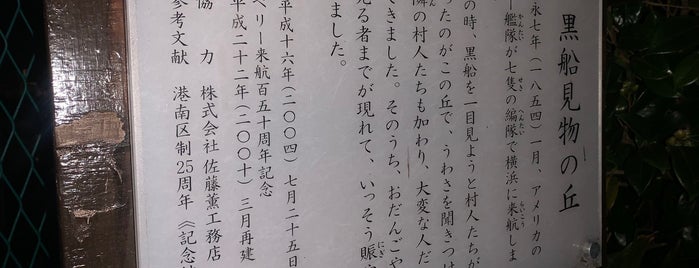 黒船見物の丘
永七年(一八五四)一月、アメリカの
ー艦隊が七隻の編隊で横浜に来航しま
の時、黒船を一目見ようと村人たちが
ったのがこの丘で、うわさを聞きつけ
隣の村人たちも加わり、大変な人だ
できました。そのうち、おだんごや
る者までが現れて、いっそう賑
ました。
平成十六年(二〇〇四)七月二十五日
ペリー来航百五十周年記念
平成二十二年(二〇一〇)三月再建
協 力 株式会社 佐藤薫工務店
参考文献 港南区制25周年《記念